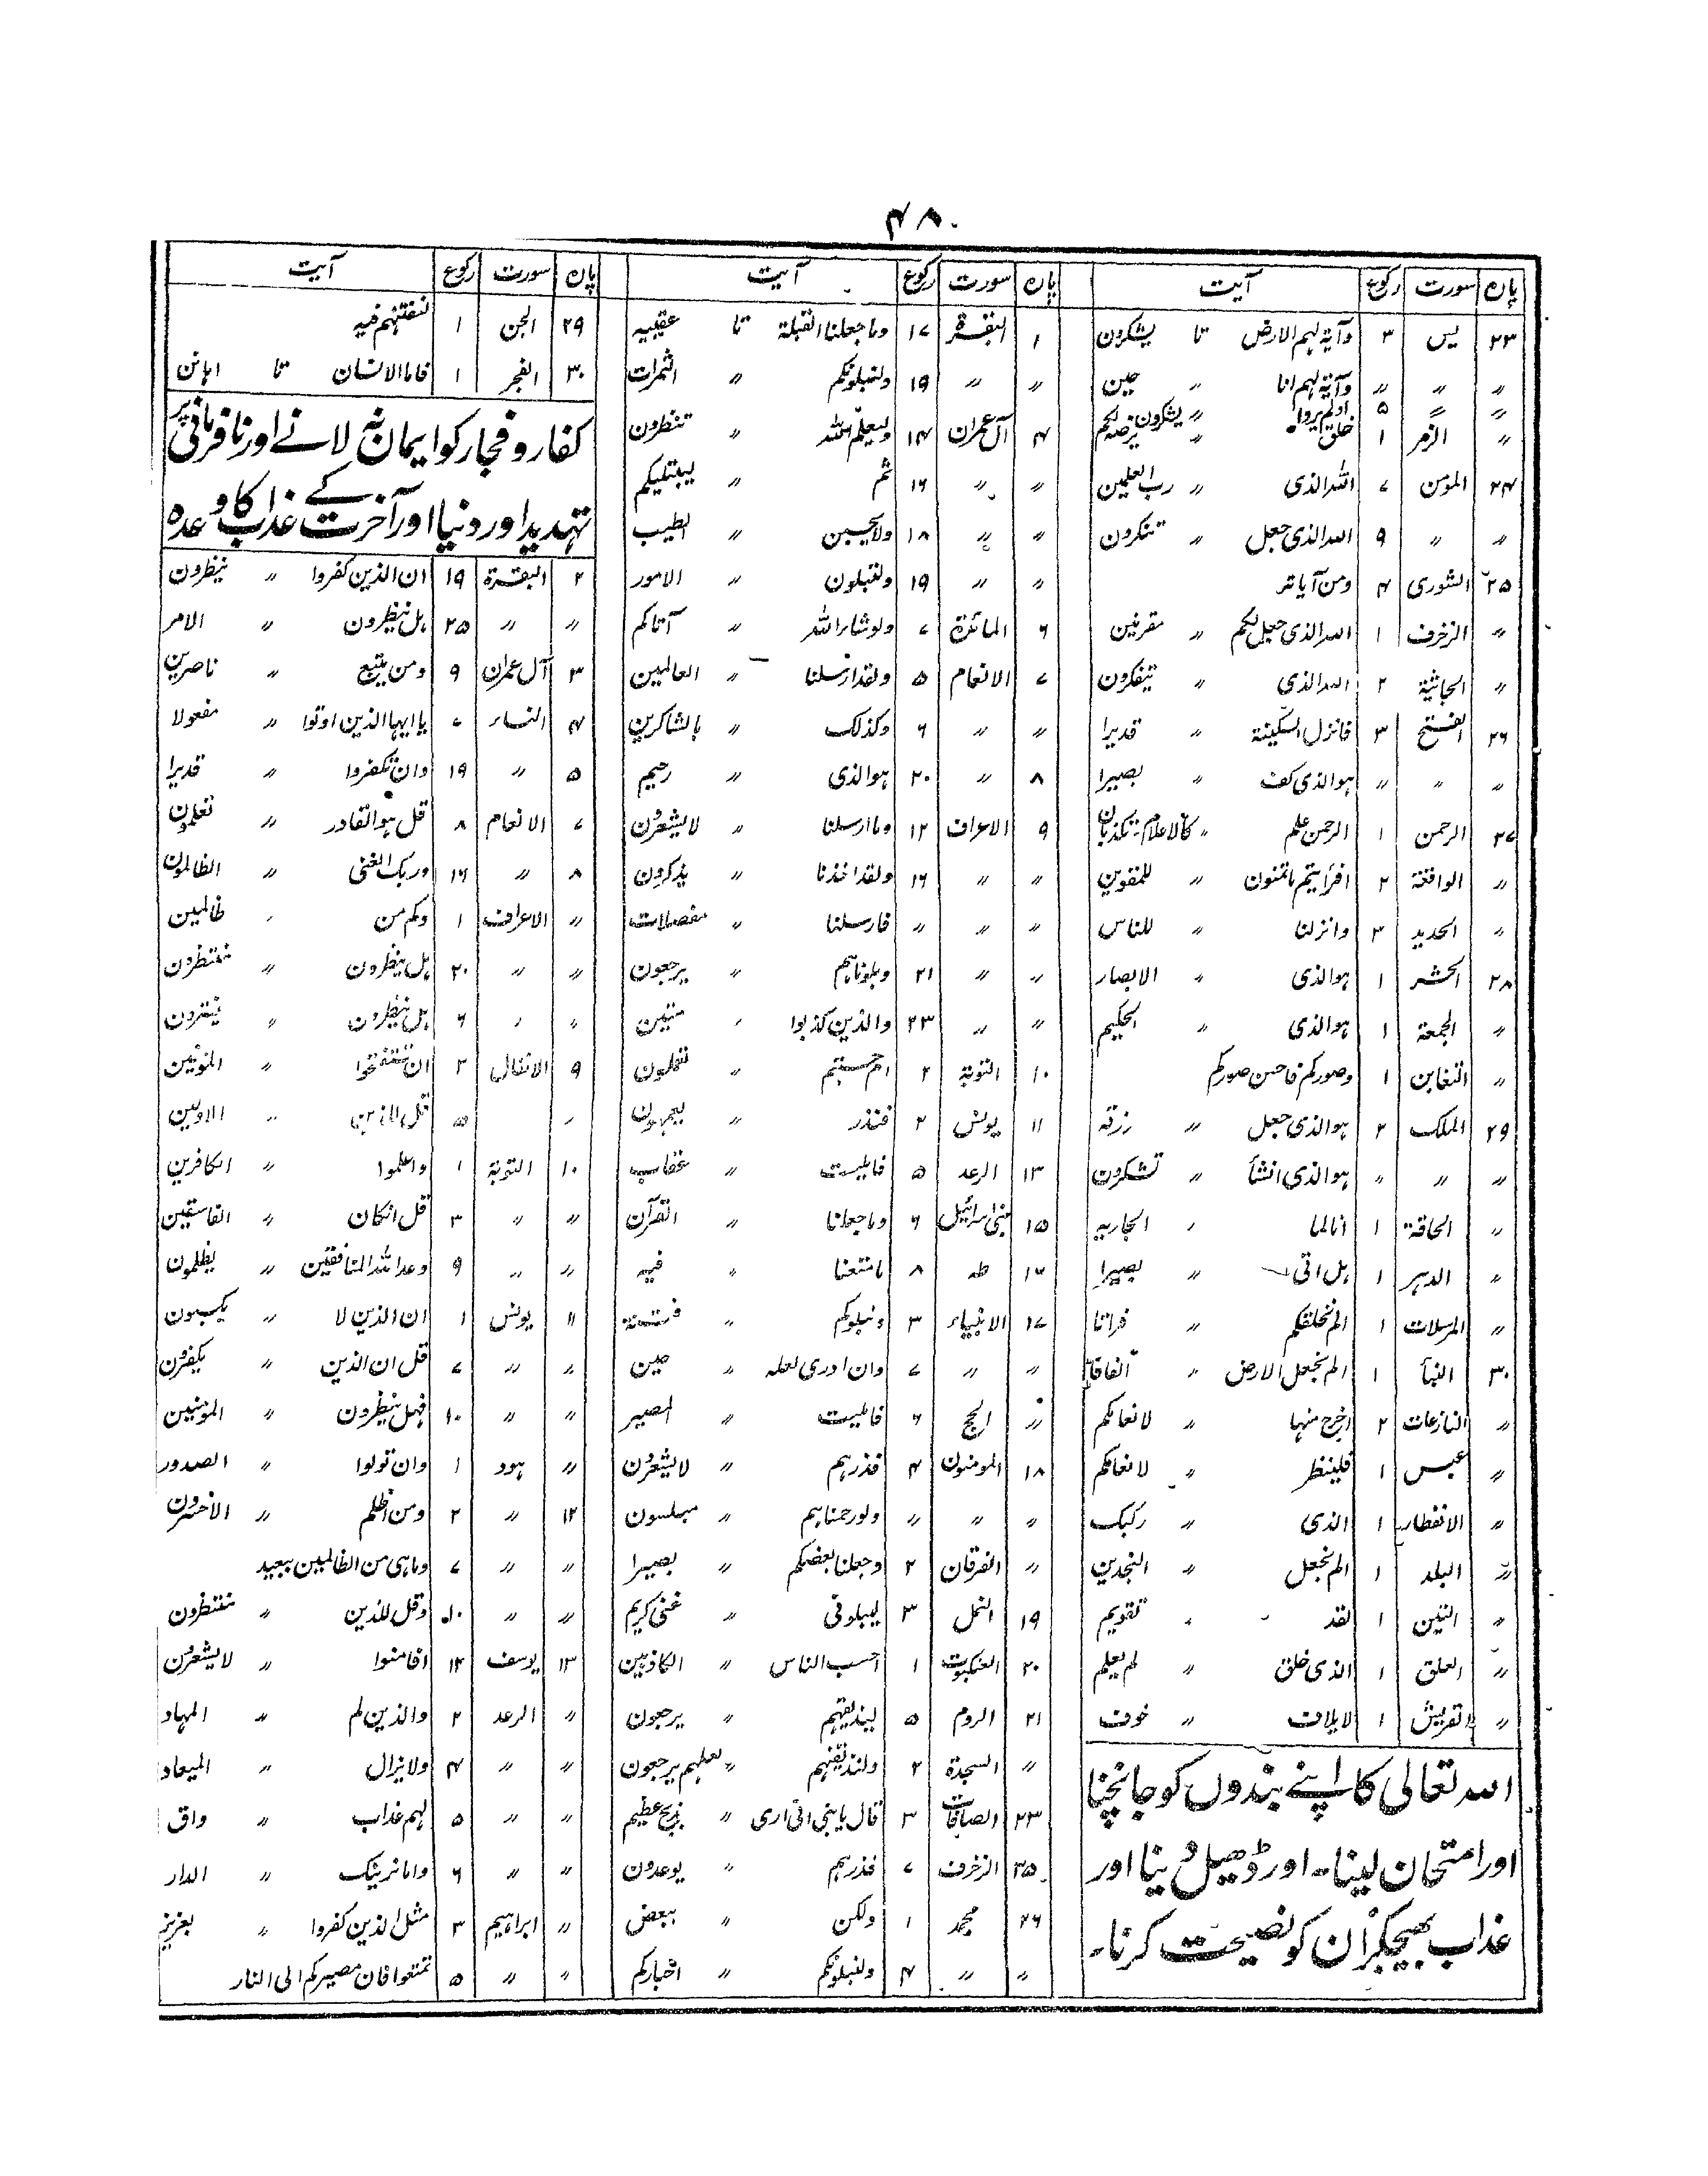 ۴۸۰
پارہ سورت رکوع آیت
۲۳ یس ۳ وآیۃ لہم الارض تا یشکرون
〃 〃 〃 وآیۃ لہم انا 〃 حین
〃 〃 ۵ اولم یروا 〃 یشکرون
〃 الزمر ۱ خلق 〃 یرضہ لکم
۲۴ المؤمن ۷ اللہ الذی 〃 رب العلمین
〃 〃 ۹ اللہ الذی جعل 〃 تنکرون
۲۵ الشوری ۴ ومن آیاتہ
〃 الزخرف ۱ اللہ الذی جعل لکم 〃 مقرنین
〃 الجاثیۃ ۲ اللہ الذی 〃 یتفکرون
۲۶ الفتح ۳ فانزل السکینۃ 〃 قدیرا
〃 〃 〃 ہو الذی کف 〃 بصیرا
۲۷ الرحمن ۱ الرحمن علم 〃 کالاعلام۔ تکذبان
〃 الواقعۃ ۲ افرأیتم ما تمنون 〃 للمقوین
〃 الحدید ۳ وانزلنا 〃 للناس
۲۸ الحشر ۱ ہو الذی 〃 الابصار
〃 الجمعۃ ۱ ہو الذی 〃 الحکیم
〃 التغابن ۱ وصورکم فاحسن صورکم
۲۹ الملک ۲ ہو الذی جعل 〃 رزقہ
〃 〃 〃 ہو الذی انشأ 〃 تشکرون
〃 الحاقۃ ۱ انا لما 〃 الجاریہ
〃 الدہر ۱ ہل اتی 〃 بصیرا
〃 المرسلات ۱ الم نخلقکم 〃 فراتا
۳۰ النبأ ۱ الم نجعل الارض 〃 الفافا
〃 النازعات ۲ اخرج منہا 〃 لانعامکم
〃 عبس ۱ فلینظر 〃 لانعامکم
〃 الانفطار ۱ الذی 〃 رکبک
〃 البلد ۱ الم نجعل 〃 النجدین
〃 التین ۱ لقد 〃 تقویم
〃 العلق ۱ الذی خلق 〃 لم یعلم
〃 القریش ۱ لایلاف 〃 خوف
اللہ تعالی کا اپنے بندوں کو جانچنا
اور امتحان لینا۔ اور ڈھیل دینا اور
عذاب بھیجکر اُن کو نصیحت کرنا۔
پارہ سورت رکوع آیت
۱ البقرۃ ۱۷ وما جعلنا القبلۃ تا عقبیہ
〃 〃 ۱۹ ولنبلونکم 〃 الثمرات
۴ آل عمران ۱۴ ولیعلم اللہ 〃 تنظرون
〃 〃 ۱۶ ثم 〃 لیبتلیکم
〃 〃 ۱۸ ولا یحسبن 〃 الطیب
〃 〃 ۱۹ ولتبلون 〃 الامور
۶ المائدۃ ۷ ولو شاء اللہ 〃 آتاکم
۷ الانعام ۵ ولقد ارسلنا 〃 العالمین
〃 〃 ۶ وکذلک 〃 بالشاکرین
۸ 〃 ۲۰ ہو الذی 〃 رحیم
۹ الاعراف ۱۲ وما ارسلنا 〃 لا یشعرون
〃 〃 ۱۶ ولقد اخذنا 〃 یذکرون
〃 〃 〃 فارسلنا 〃 مفصلات
〃 〃 ۲۱ وبلوناہم 〃 یرجعون
〃 〃 ۲۳ والذین کذبوا 〃 متین
۱۰ التوبۃ ۲ ام حسبتم 〃 تعملون
۱۱ یونس ۲ فنذر 〃 یعمہون
۱۳ الرعد ۵ فاملیت 〃 عقاب
۱۵ بنی اسرائیل ۶ وما جعلنا 〃 القرآن
۱۶ طہ ۸ ما متعنا 〃 فیہ
۱۷ الانبیاء ۳ ونبلوکم 〃 فتنۃ
〃 〃 ۷ وان ادری لعلہ 〃 حین
〃 الحج ۶ فاملیت 〃 المصیر
۱۸ المومنون ۴ فذرہم 〃 لا یشعرون
〃 〃 〃 ولو رحمناہم 〃 مبلسون
〃 الفرقان ۲ وجعلنا بعضکم 〃 بصیرا
۱۹ النمل ۳ لیبلونی 〃 غنی کریم
۲۰ العنکبوت ۱ احسب الناس 〃 الکاذبین
۲۱ الروم ۵ لیذیقہم 〃 یرجعون
〃 السجدۃ ۲ ولنذیقنہم 〃 لعلہم یرجعون
۲۳ الصافات ۳ قال یا بنی انی اری 〃 بذبح عظیم
۲۵ الزخرف ۷ فذرہم 〃 یوعدون
۲۶ محمد ۱ ولکن 〃 ببعض
〃 〃 ۴ ولنبلونکم 〃 اخبارکم
پارہ سورت رکوع آیت
۲۹ الجن ۱ لنفتنہم فیہ
۳۰ الفجر ۱ فاما الانسان تا اہانن
کفار و فجار کو ایمان نہ لانے اور نافرمانی پر
تہدید اور دنیا اور آخرت کے عذاب کا وعدہ
۲ البقرۃ ۱۹ ان الذین کفروا 〃 ینظرون
〃 〃 ۲۵ ہل ینظرون 〃 الامر
۳ آل عمران ۹ ومن یبتغ 〃 ناصرین
۴ النساء ۷ یا ایہا الذین اوتوا 〃 مفعولا
۵ 〃 ۱۹ وان تکفروا 〃 قدیرا
۷ الانعام ۸ قل ہو القادر 〃 تعلمون
۸ 〃 ۱۶ وربک الغنی 〃 الظالمون
〃 الاعراف ۱ وکم من 〃 ظالمین
〃 〃 ۲۰ ہل ینظرون 〃 منتظرون
〃 〃 ۶ ہل ینظرون 〃 یفترون
۹ الانفال ۲ ان تستفتحوا 〃 المؤمنین
〃 ۵ قل للذین 〃 الاولین
۱۰ التوبۃ ۱ واعلموا 〃 الکافرین
〃 〃 ۳ قل ان کان 〃 الفاسقین
〃 〃 ۹ وعد اللہ المنافقین 〃 یظلمون
۱۱ یونس ۱ ان الذین لا 〃 یکسبون
〃 〃 ۷ قل ان الذین 〃 یکفرون
〃 〃 ۱۰ فہل ینظرون 〃 المومنین
〃 ہود ۱ وان تولوا 〃 الصدور
۱۲ 〃 ۲ ومن اظلم 〃 الاخسرون
〃 〃 ۷ وما ہی من الظالمین ببعید
〃 〃 ۱۰ وقل للذین 〃 منتظرون
۱۳ یوسف ۱۲ افامنوا 〃 لا یشعرون
〃 الرعد ۲ والذین لم 〃 المہاد
〃 〃 ۴ ولا یزال 〃 المیعاد
〃 〃 ۵ لہم عذاب 〃 واق
〃 〃 ۶ واما نرینک 〃 الدار
〃 ابراہیم ۳ مثل الذین کفروا 〃 بعزیز
〃 〃 ۵ تمتعوا فان مصیرکم الی النار